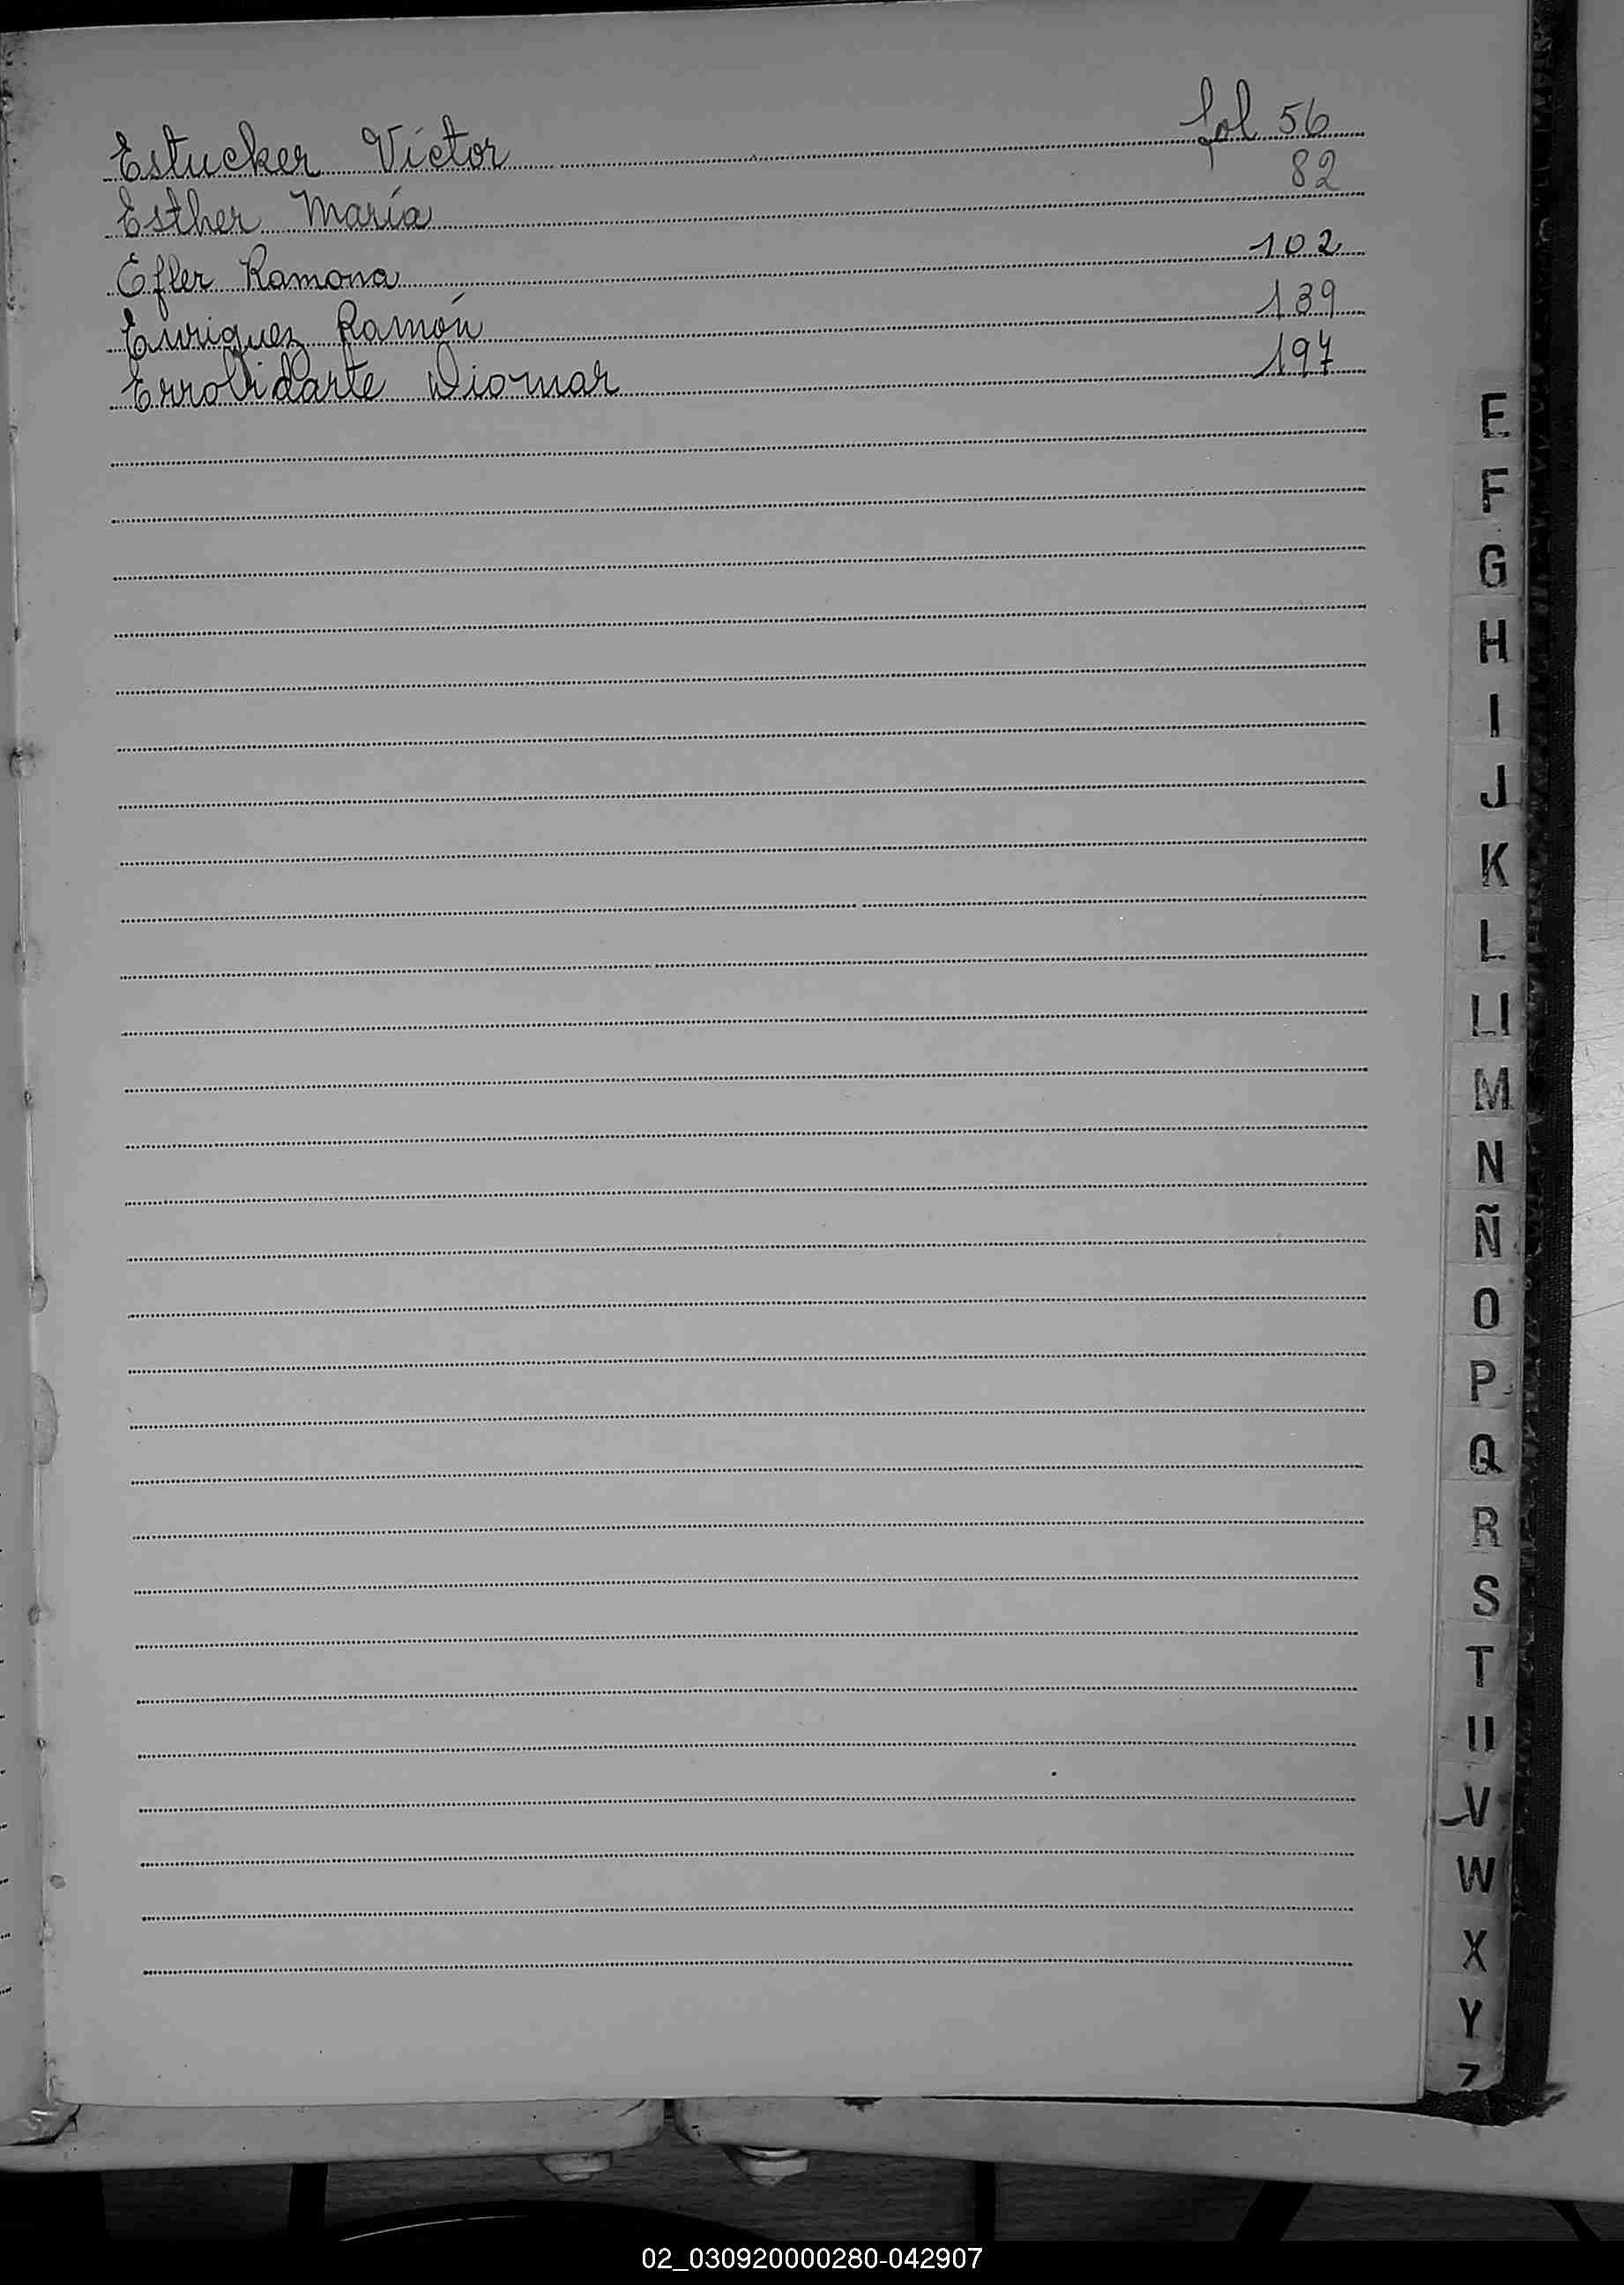 Estucker Víctor fol 56
Esther María 82
Efler Ramona 102
Enriquez Ramón 139
Errolidarte Diomar 197
E
F
G
H
I
J
K
L
Ll
M
N
Ñ
O
P
Q
R
S
T
U
V
W
X
Y
Z
02_030920000280-042907